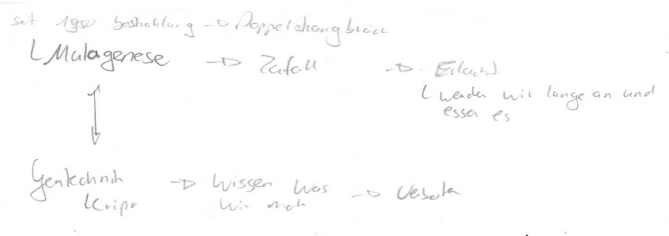 seit 1950 Bestrahlung → Doppelstrangbruch
Mutagenese → Zufall → Erlaubt
wenden wir lange an und
essen es
Gentechnik → Wissen was → Verboten
wir